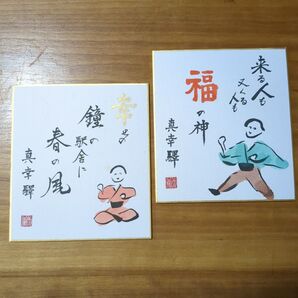 幸せの
鐘の
駅舎に
春の風
真幸驛
来る人も
又くる人も
福の神
真幸驛